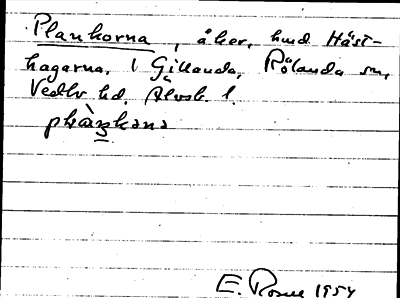 Plankorna, åker, hmd Häst-
hagarna. 1 Gillanda, Rölanda sn,
Vedbo hd. Älvsb. l.
E. Rosell 1954